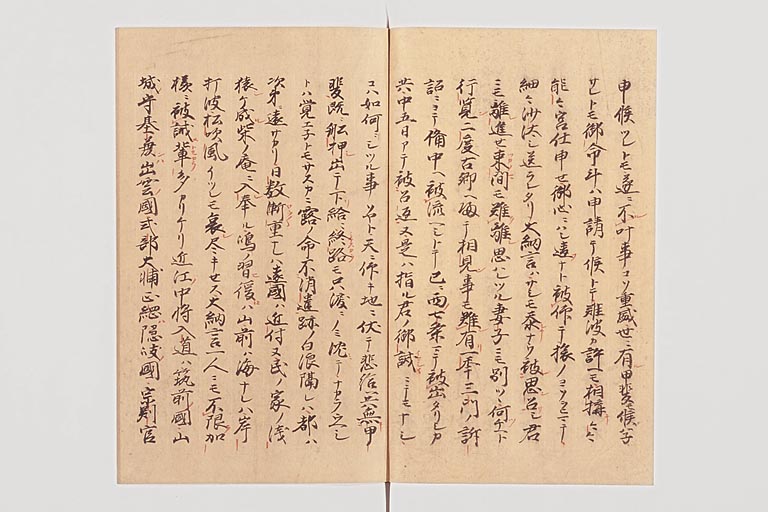 申候ツレトモ遂ニ不叶事コソ重盛世ニ有甲斐候ハ子
サレトモ御命計ハ申請テ候トテ難波カ許ヘモ相構ヘテ
能々宮仕申セ御心ニハシ違ナト被仰テ旅ノヨソヲヒニテ
細々沙汰シ送ラレタリ大納言ハサシモ忝ナク被思召シ君
ニモ離進セ束間モ難離思ハレツル妻子ニモ別ツヽ何チトテ
行覧二度古郷ヘ帰テ相見事モ難有一年三門ノ訴
詔ニヨテ備中ヘ被流シトテ已ニ西七条ニテ被出タリシカ
共中五日アテ被召返又是ハ指ル君ノ御誡ニモナシ
コハ如何ニシツル事ソヤト天ニ仰キ地ニ伏テ悲給ヘ共無甲
斐既ニ舩押出テ下給ニ終路モ只涙ニノミ沈テナカラウヘシ
トハ覚エ子トモサスカニ露ノ命不消遣跡ノ白浪隔レハ都ハ
次第ニ遠サカリ日数漸重レハ遠國ハ近付又民ノ家ノ浅
猿ケ成柴ノ庵ニ入奉ル鴻ノ習後ハ山前ハ海ナレハ岸
打波松吹風イツレモ哀尽キセス大納言一人ニモ不限加
様ニ被誡輩多カリケリ近江中将入道ハ筑前國山
城守基兼出雲國式部大輔正綱隠岐國宗判官